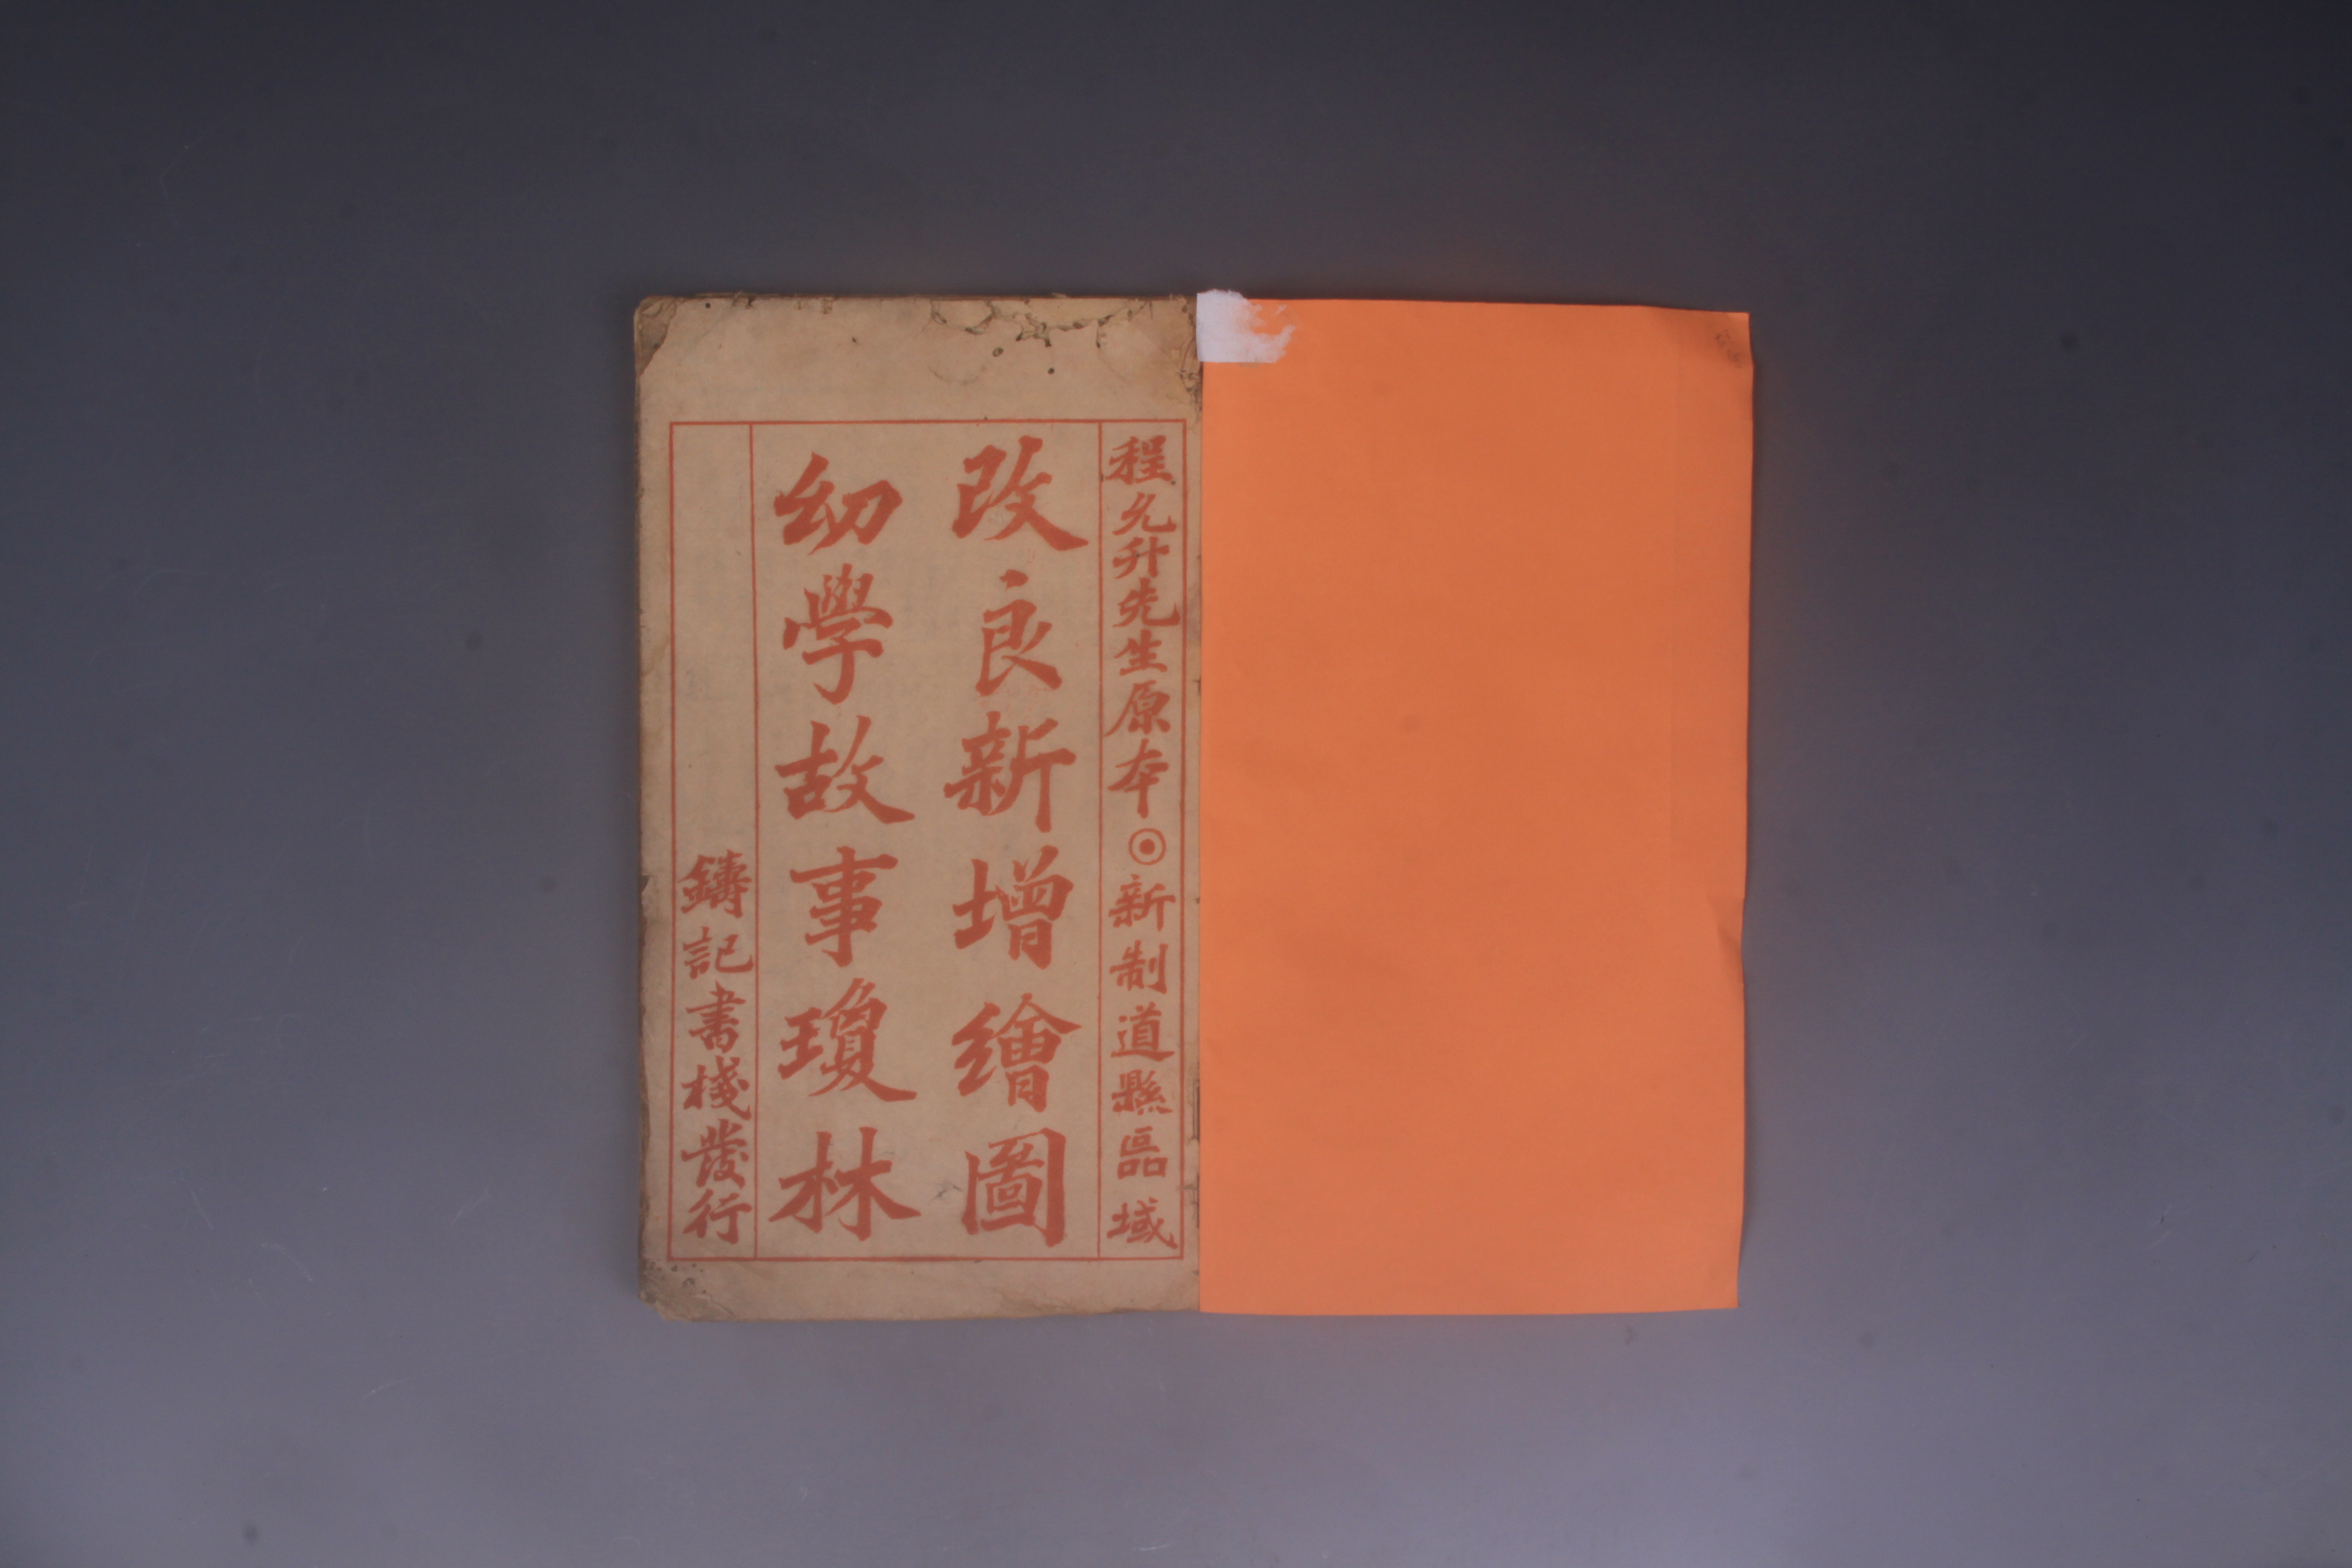 程允升先生原本◉新制道縣區域
改良新增繪圖
幼學故事瓊林
鑄記書棧發行